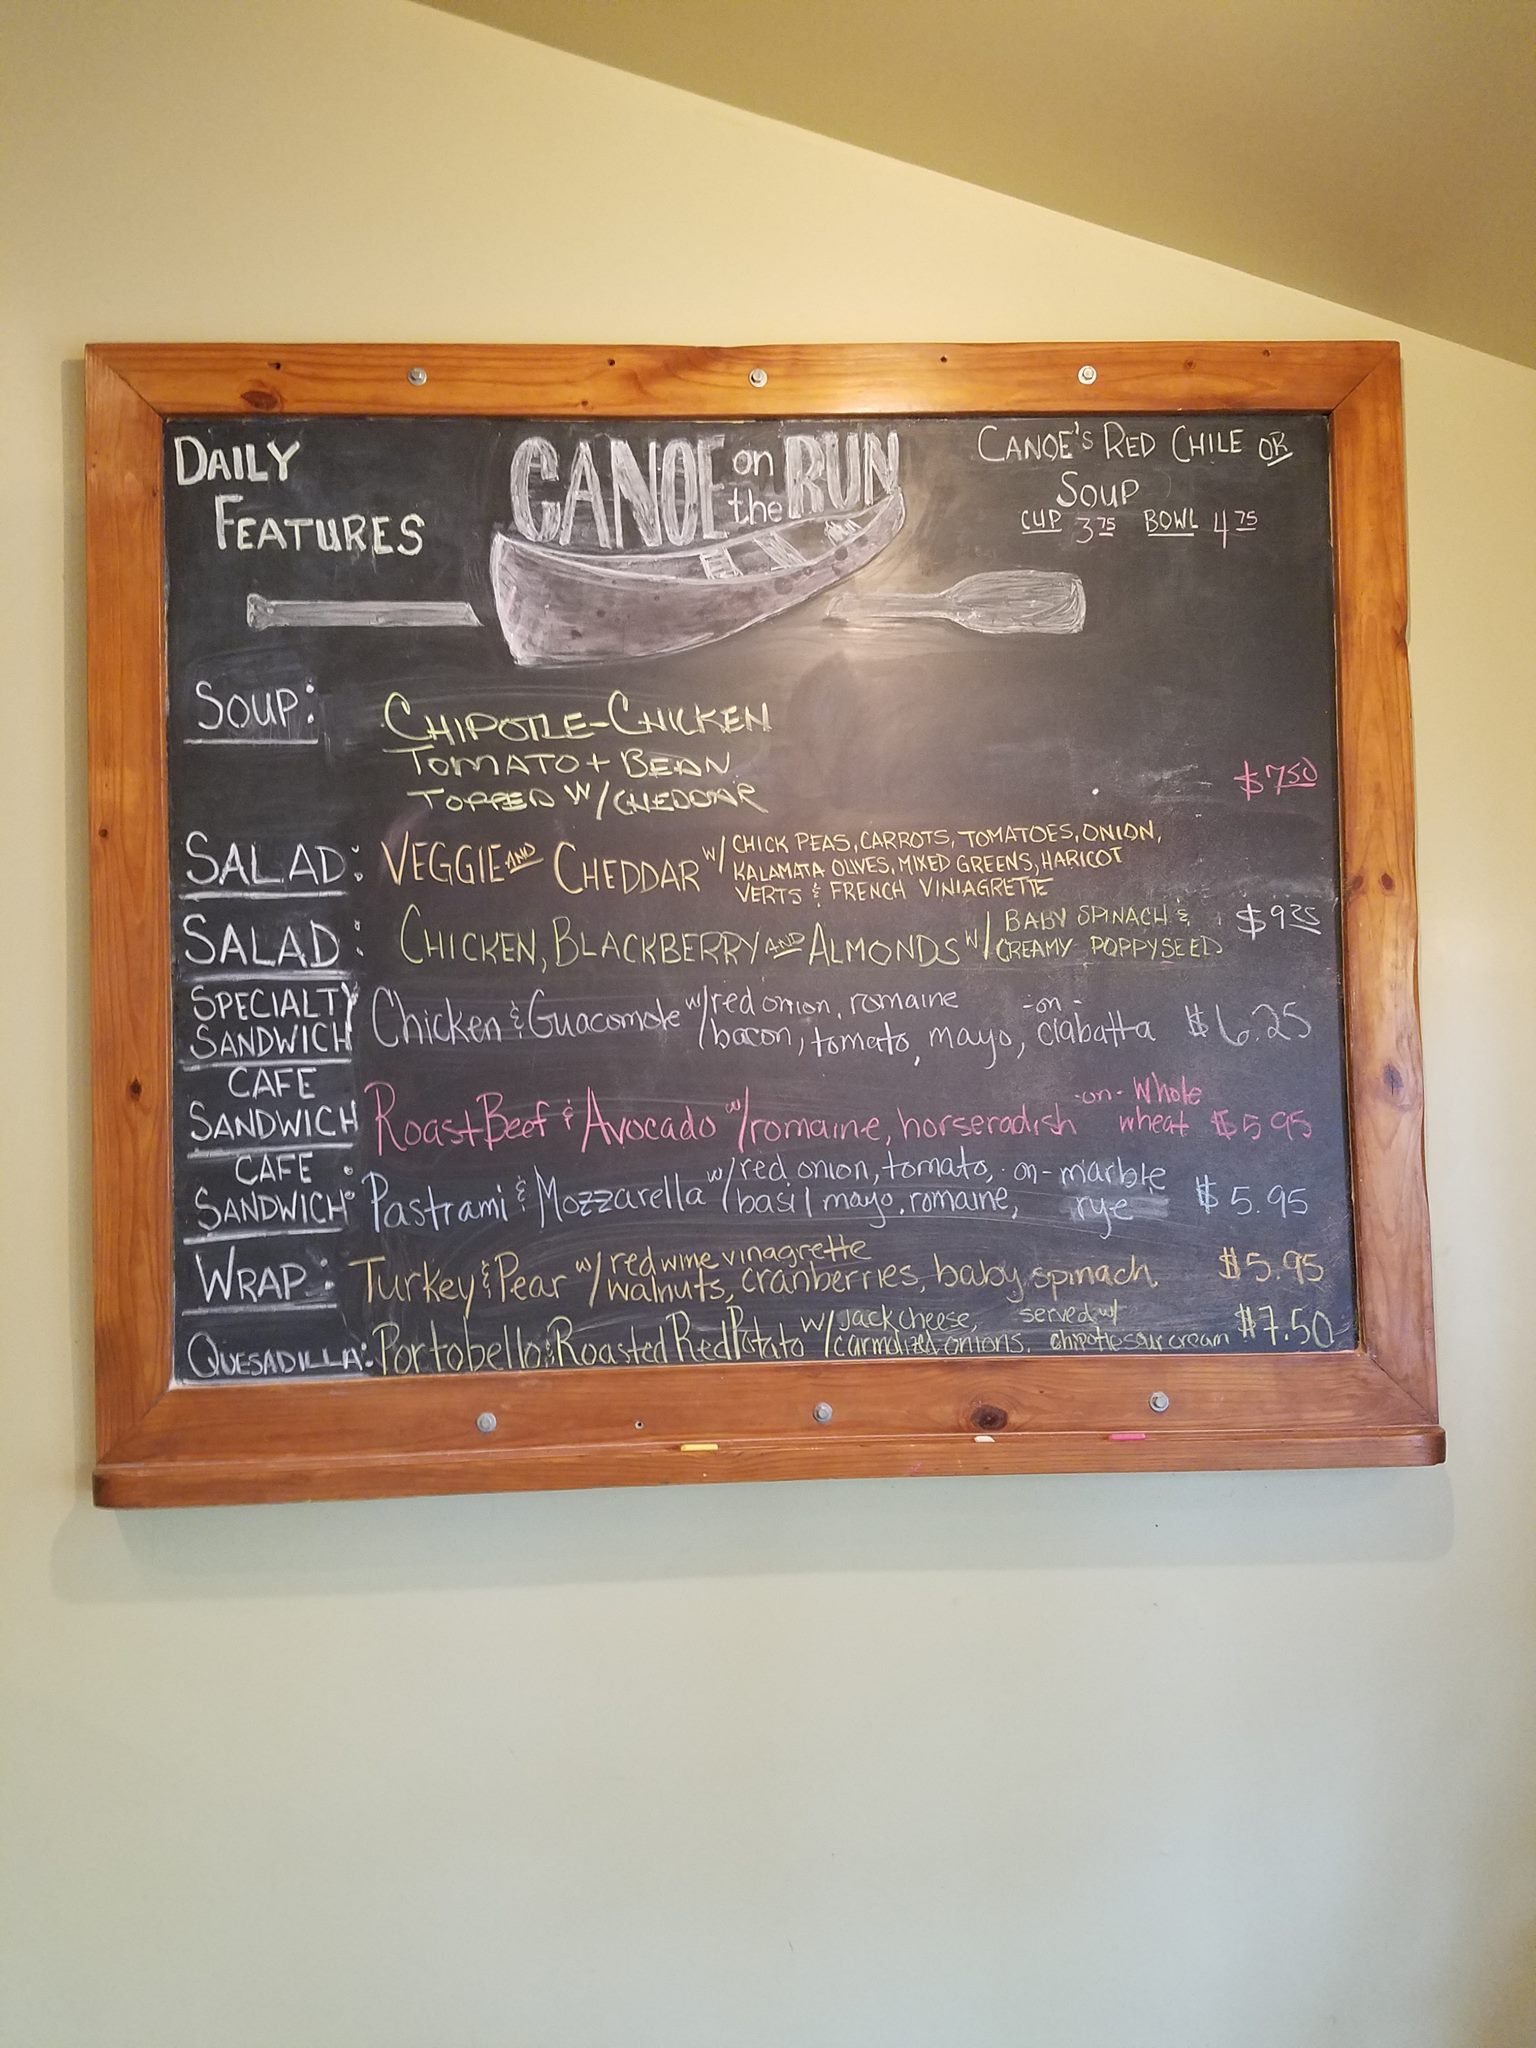 DAILY
FEATURES
CANOE on the RUN
CANOE'S RED CHILE OR
SOUP
CUP 3 75 BOWL 4 75
SOUP:
CHIPOTLE-CHICKEN
TOMATO + BEAN
TOPPED W/ CHEDDAR
$7 50
SALAD: VEGGIE AND CHEDDAR W/ CHICK PEAS, CARROTS, TOMATOES, ONION,
KALAMATA OLIVES, MIXED GREENS, HARICOT
VERTS & FRENCH VINIAGRETTE
SALAD: CHICKEN, BLACKBERRY AND ALMONDS W/ BABY SPINACH &
CREAMY POPPYSEED $9 25
SPECIALTY
SANDWICH Chicken & Guacomole w/ red onion, romaine
bacon, tomato, mayo, -on- ciabatta $6.25
CAFE
SANDWICH Roast Beef & Avocado w/ romaine, horseradish -on- whole
wheat $5.95
CAFE
SANDWICH: Pastrami & Mozzarella w/ red onion, tomato, -on- marble
basil mayo, romaine, rye $5.95
WRAP: Turkey & Pear w/ red wine vinagrette
walnuts, cranberries, baby spinach $5.95
QUESADILLA: Portobello & Roasted Red Potato w/ jack cheese, served w/
carmalized onions. chipotle sour cream $7.50